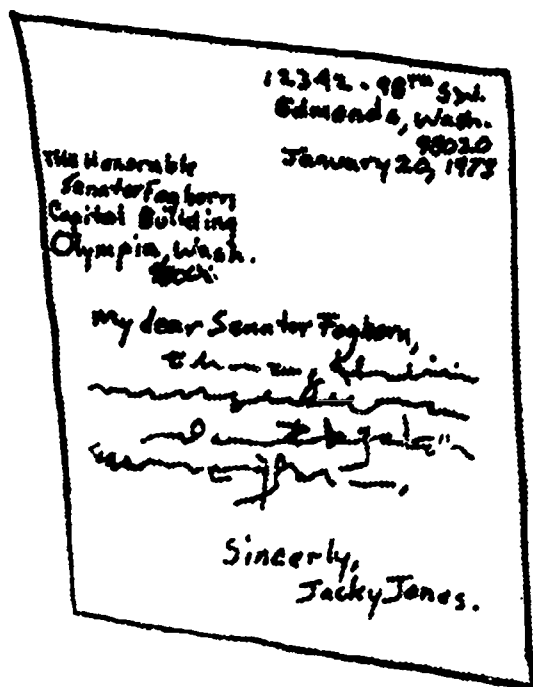 12342 - 98TH S.W.
Edmonds, Wash.
98020
January 20, 1973
The Honorable
Senator Foghorn
Capitol Building
Olympia, Wash.
My dear Senator Foghorn,
Sincerly,
Jacky Jones.